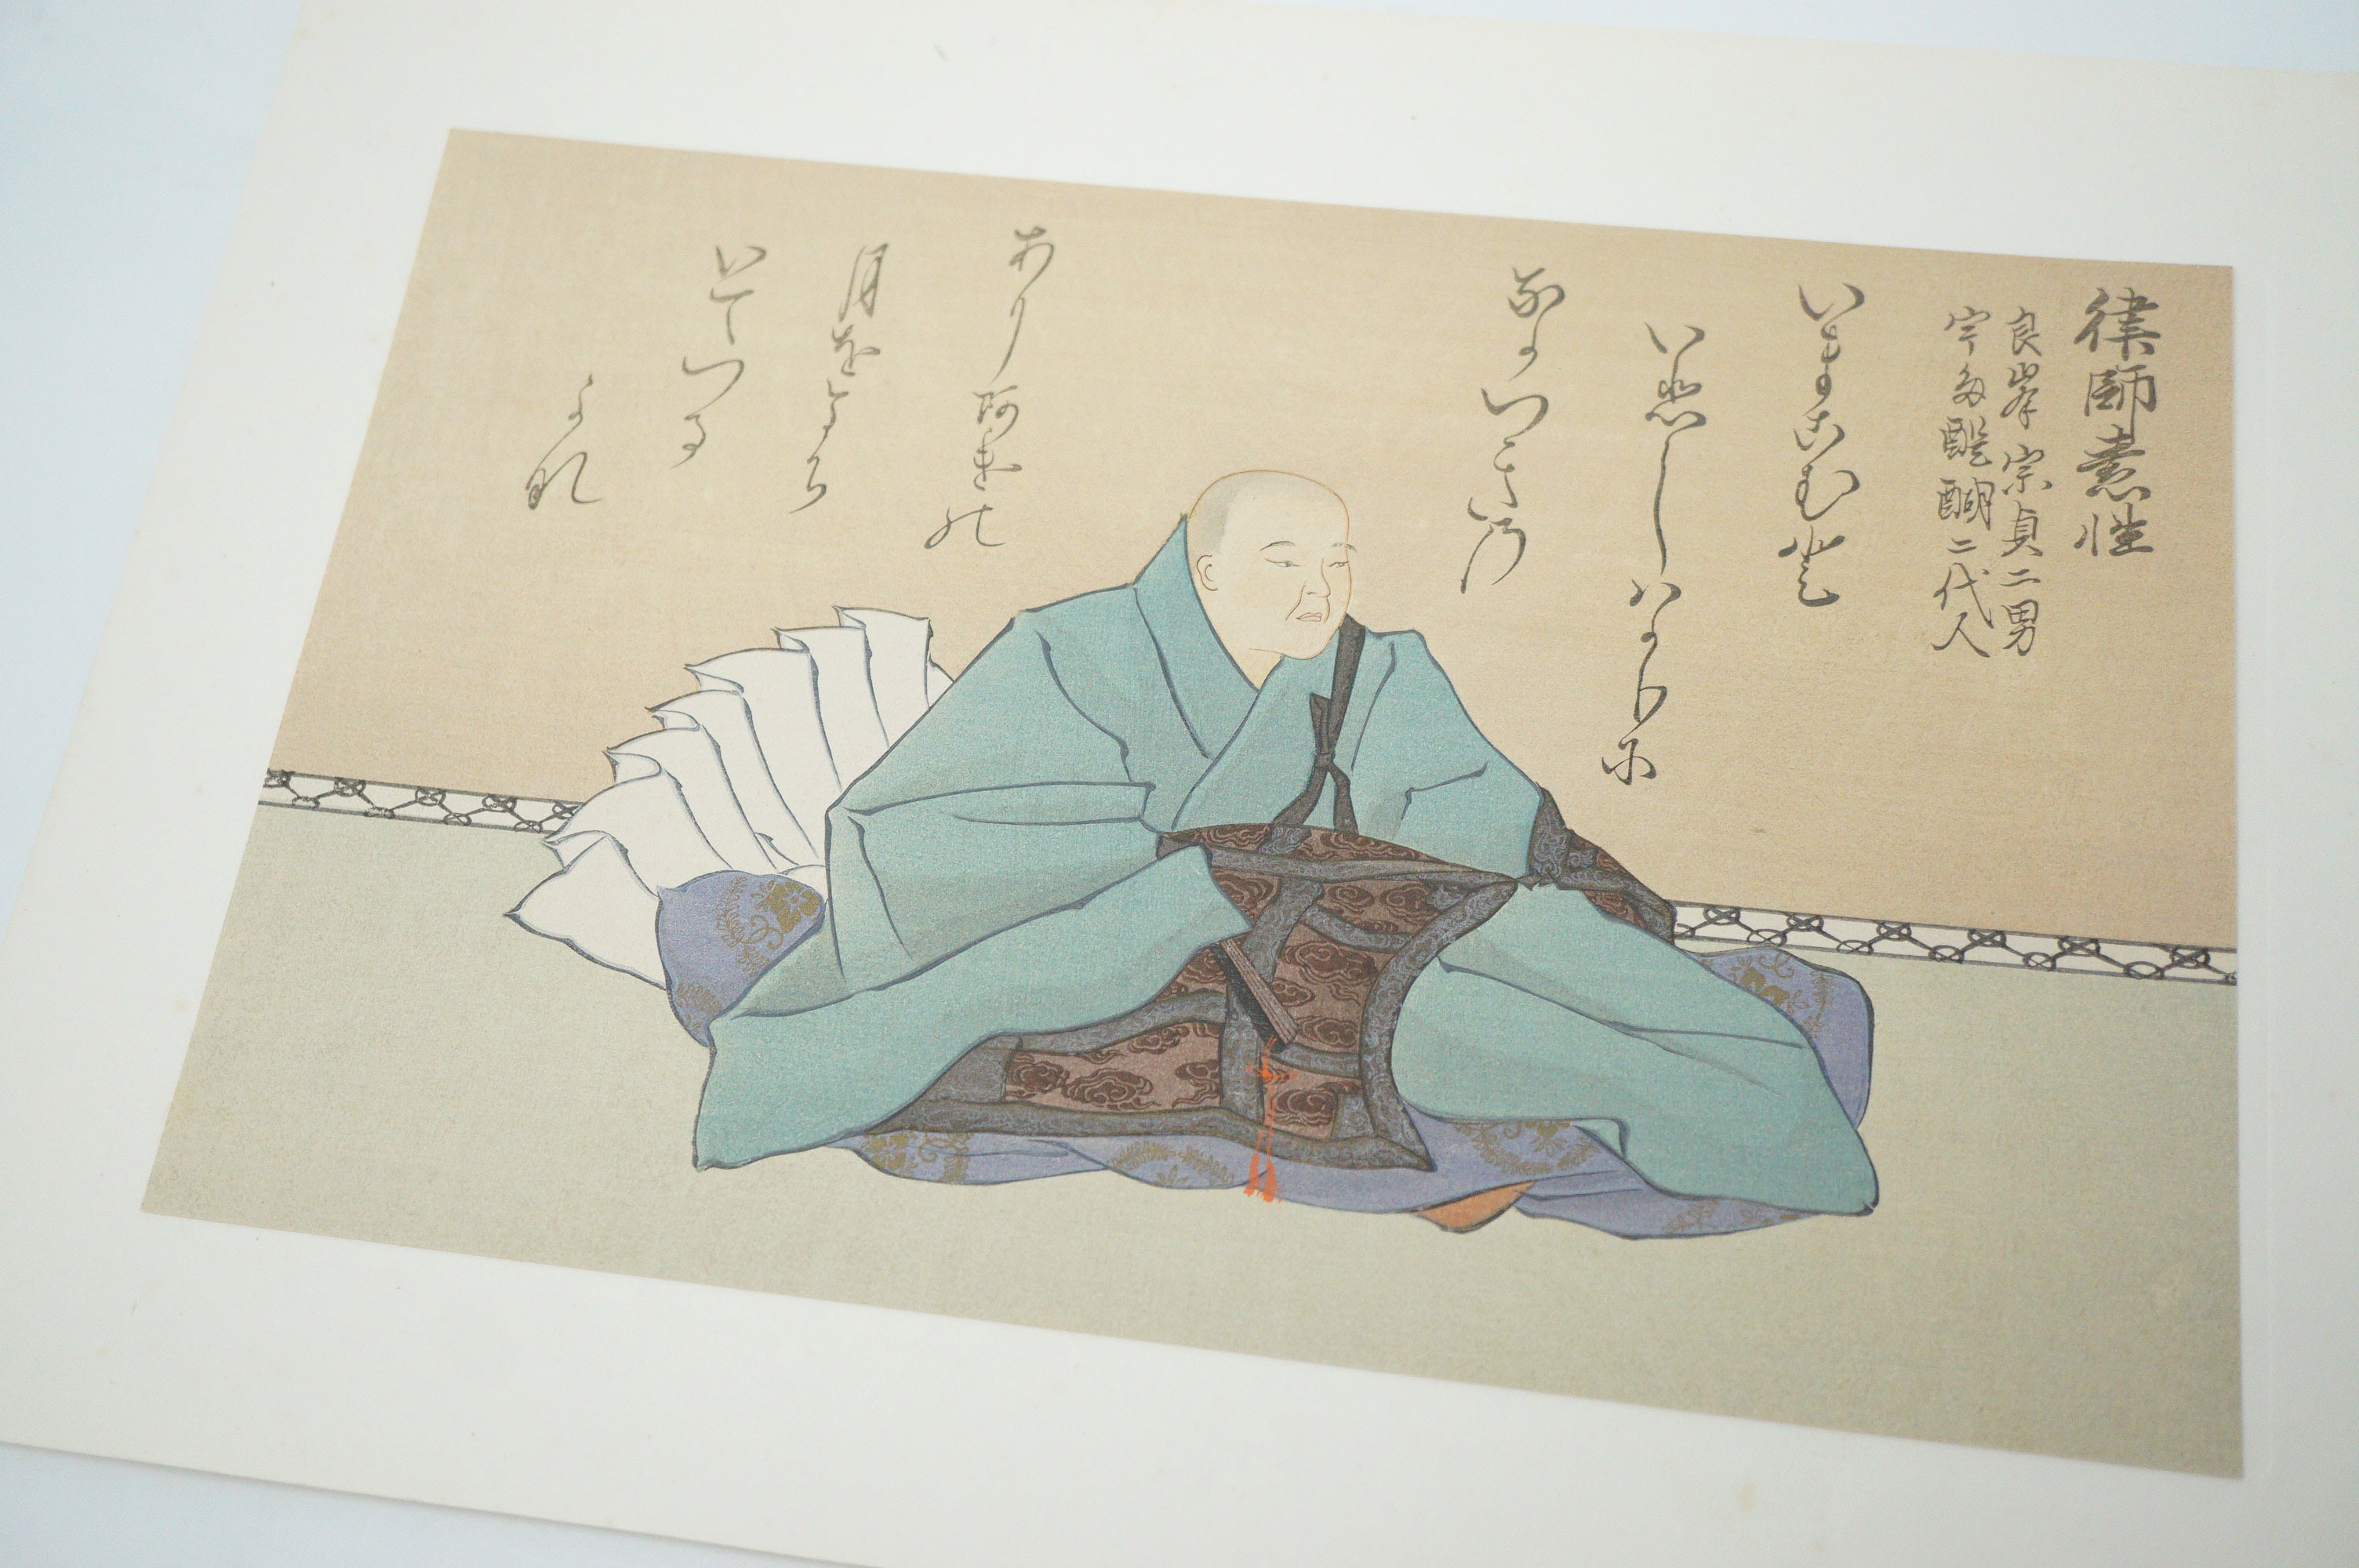 律師素性
良峯宗貞二男
宇多醍醐二代人
いまこむと
いひしハかりに
なかつきの
あり阿けの
月をまち
いてつる
かな